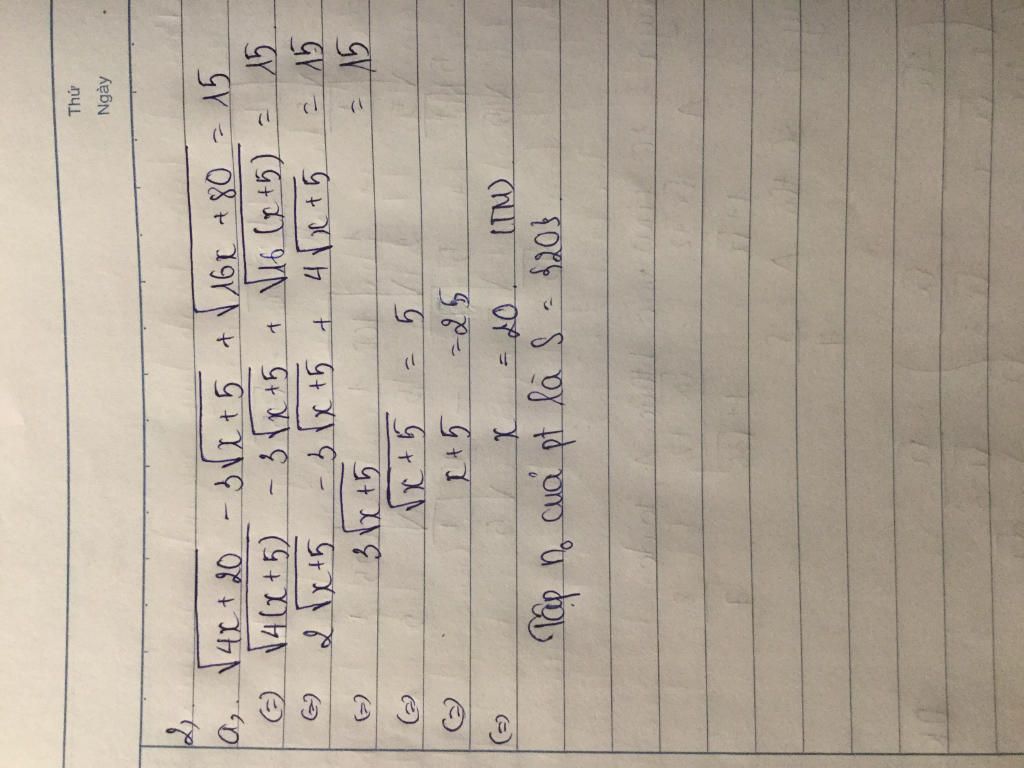 Thứ
Ngày
2,
a, √(4x + 20) - 3√(x + 5) + √(16x + 80) = 15
(=) √(4(x + 5)) - 3√(x + 5) + √(16(x + 5)) = 15
(=) 2√(x + 5) - 3√(x + 5) + 4√(x + 5) = 15
(=) 3√(x + 5) = 15
(=) √(x + 5) = 5
(=) x + 5 = 25
(=) x = 20 (TM)
Tập n₀ cuả pt là S = {20}